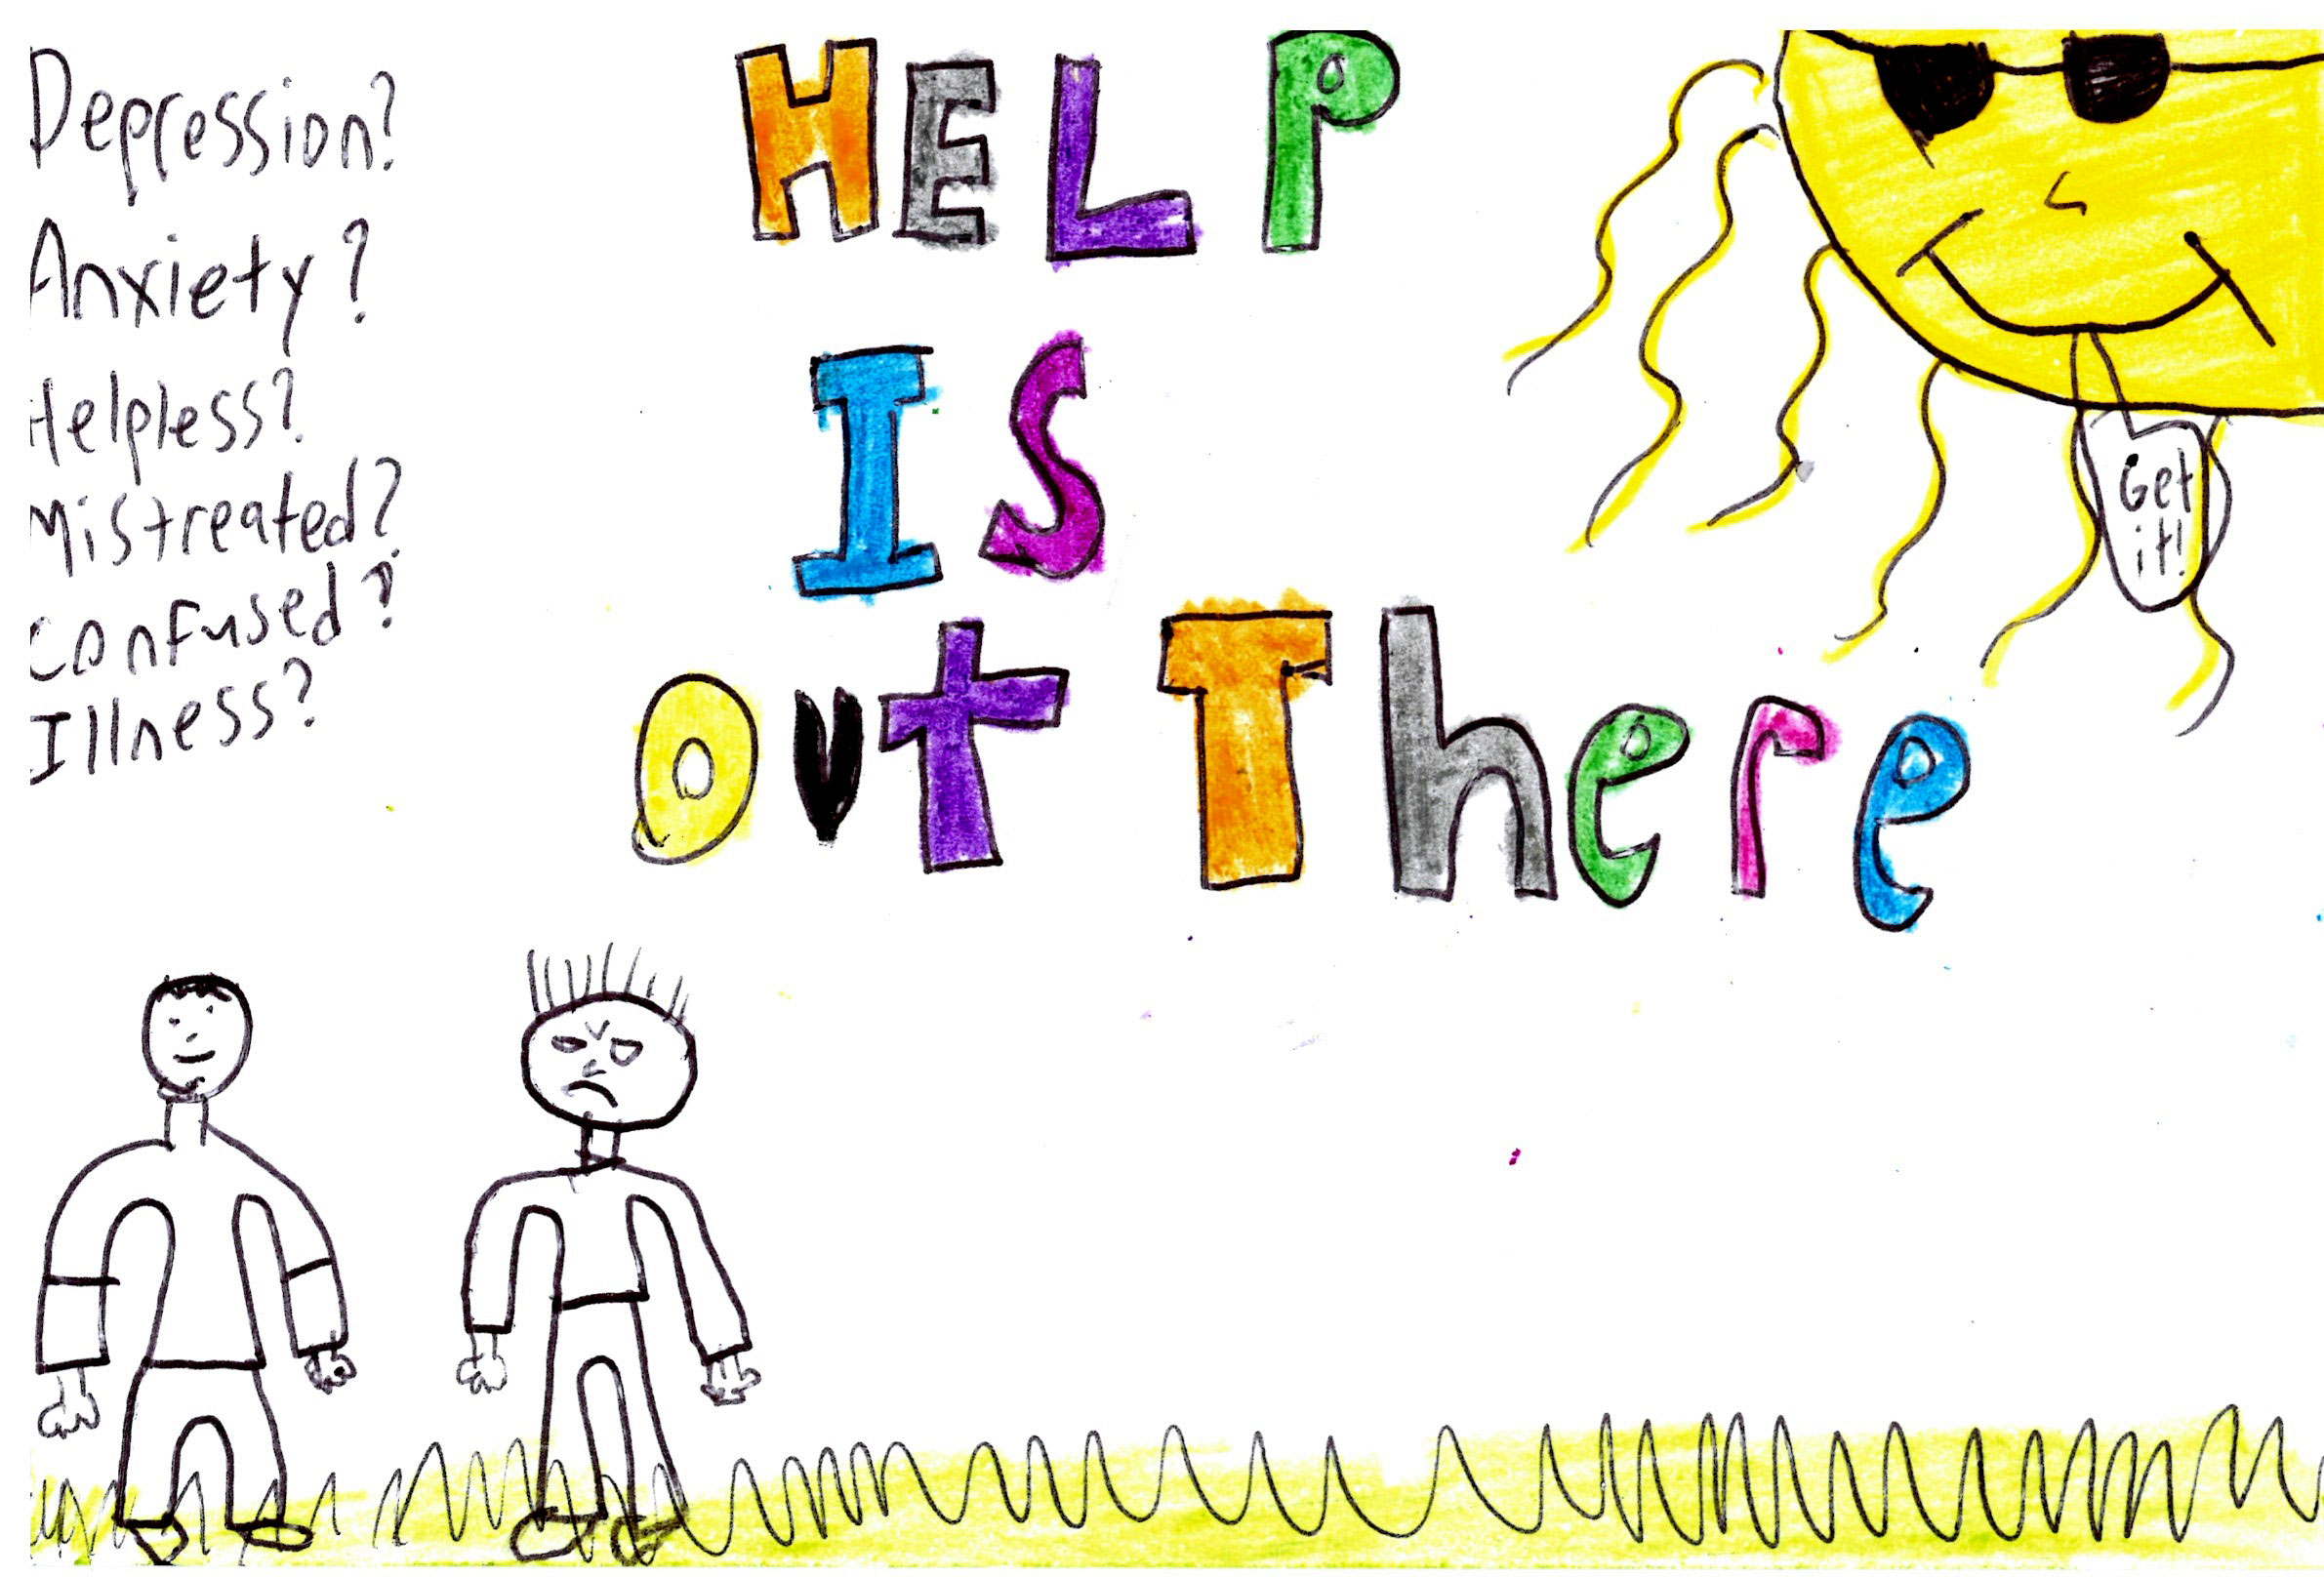 Depression?
Anxiety?
Helpless?
Mistreated?
confused?
Illness?
HELP
IS
Out There
Get
it!